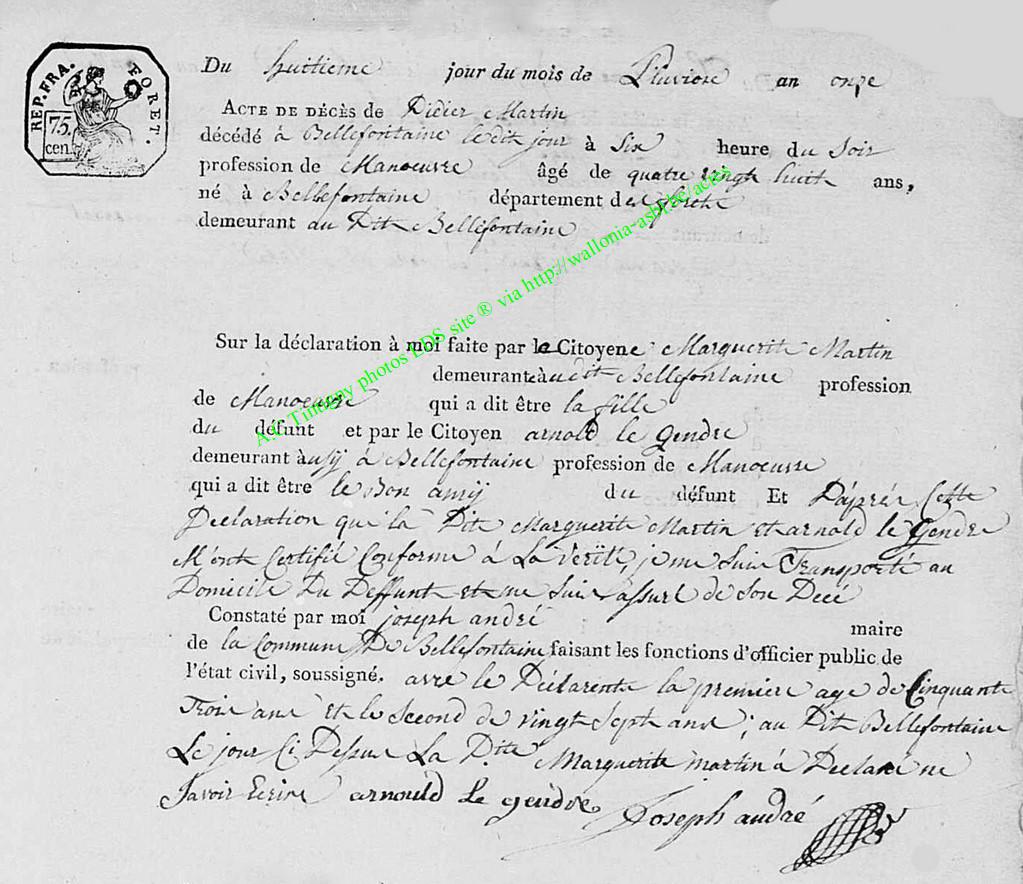 REP. FRA.
FORET.
75.
cen.
Du huitieme jour du mois de Pluviose an onze
ACTE DE DÉCÈS de Didier Martin
décédé à Bellefontaine ledit jour à Six heure du Soir
profession de Manoeuvre âgé de quatre vingt huit ans,
né à Bellefontaine département des forêts
demeurant au Dit Bellefontaine
Sur la déclaration à moi faite par le Citoyene Marguerite Martin
demeurant audit Bellefontaine profession
de Manoeuvre qui a dit être la fille
du défunt et par le Citoyen arnold le Gendre
demeurant ausy à Bellefontaine profession de Manoeuvre
qui a dit être le Bon amy du défunt Et D'áprés Cette
Declaration que la Dite Marguerite Martin et arnold le Gendre
M'ont Certifié Conforme á La Verité, je me Suis Transporté au
Domicile Du Deffunt et me Suis assuré de Son Decé
Constaté par moi joseph andré maire
de la Commune De Bellefontaine faisant les fonctions d'officier public de
l'état civil, soussigné. avec le Déclarents la premiere age de Cinquante
Trois ans et le Second de vingt Sept ans; au Dit Bellefontaine
Le jour Ci Dessus La Dite Marguerite martin á Declaré ne
Savoir Ecrire arnould Le gendre Joseph andré
A.C. Tintigny photos EDS site ® via http://wallonia-asbl.be/actes